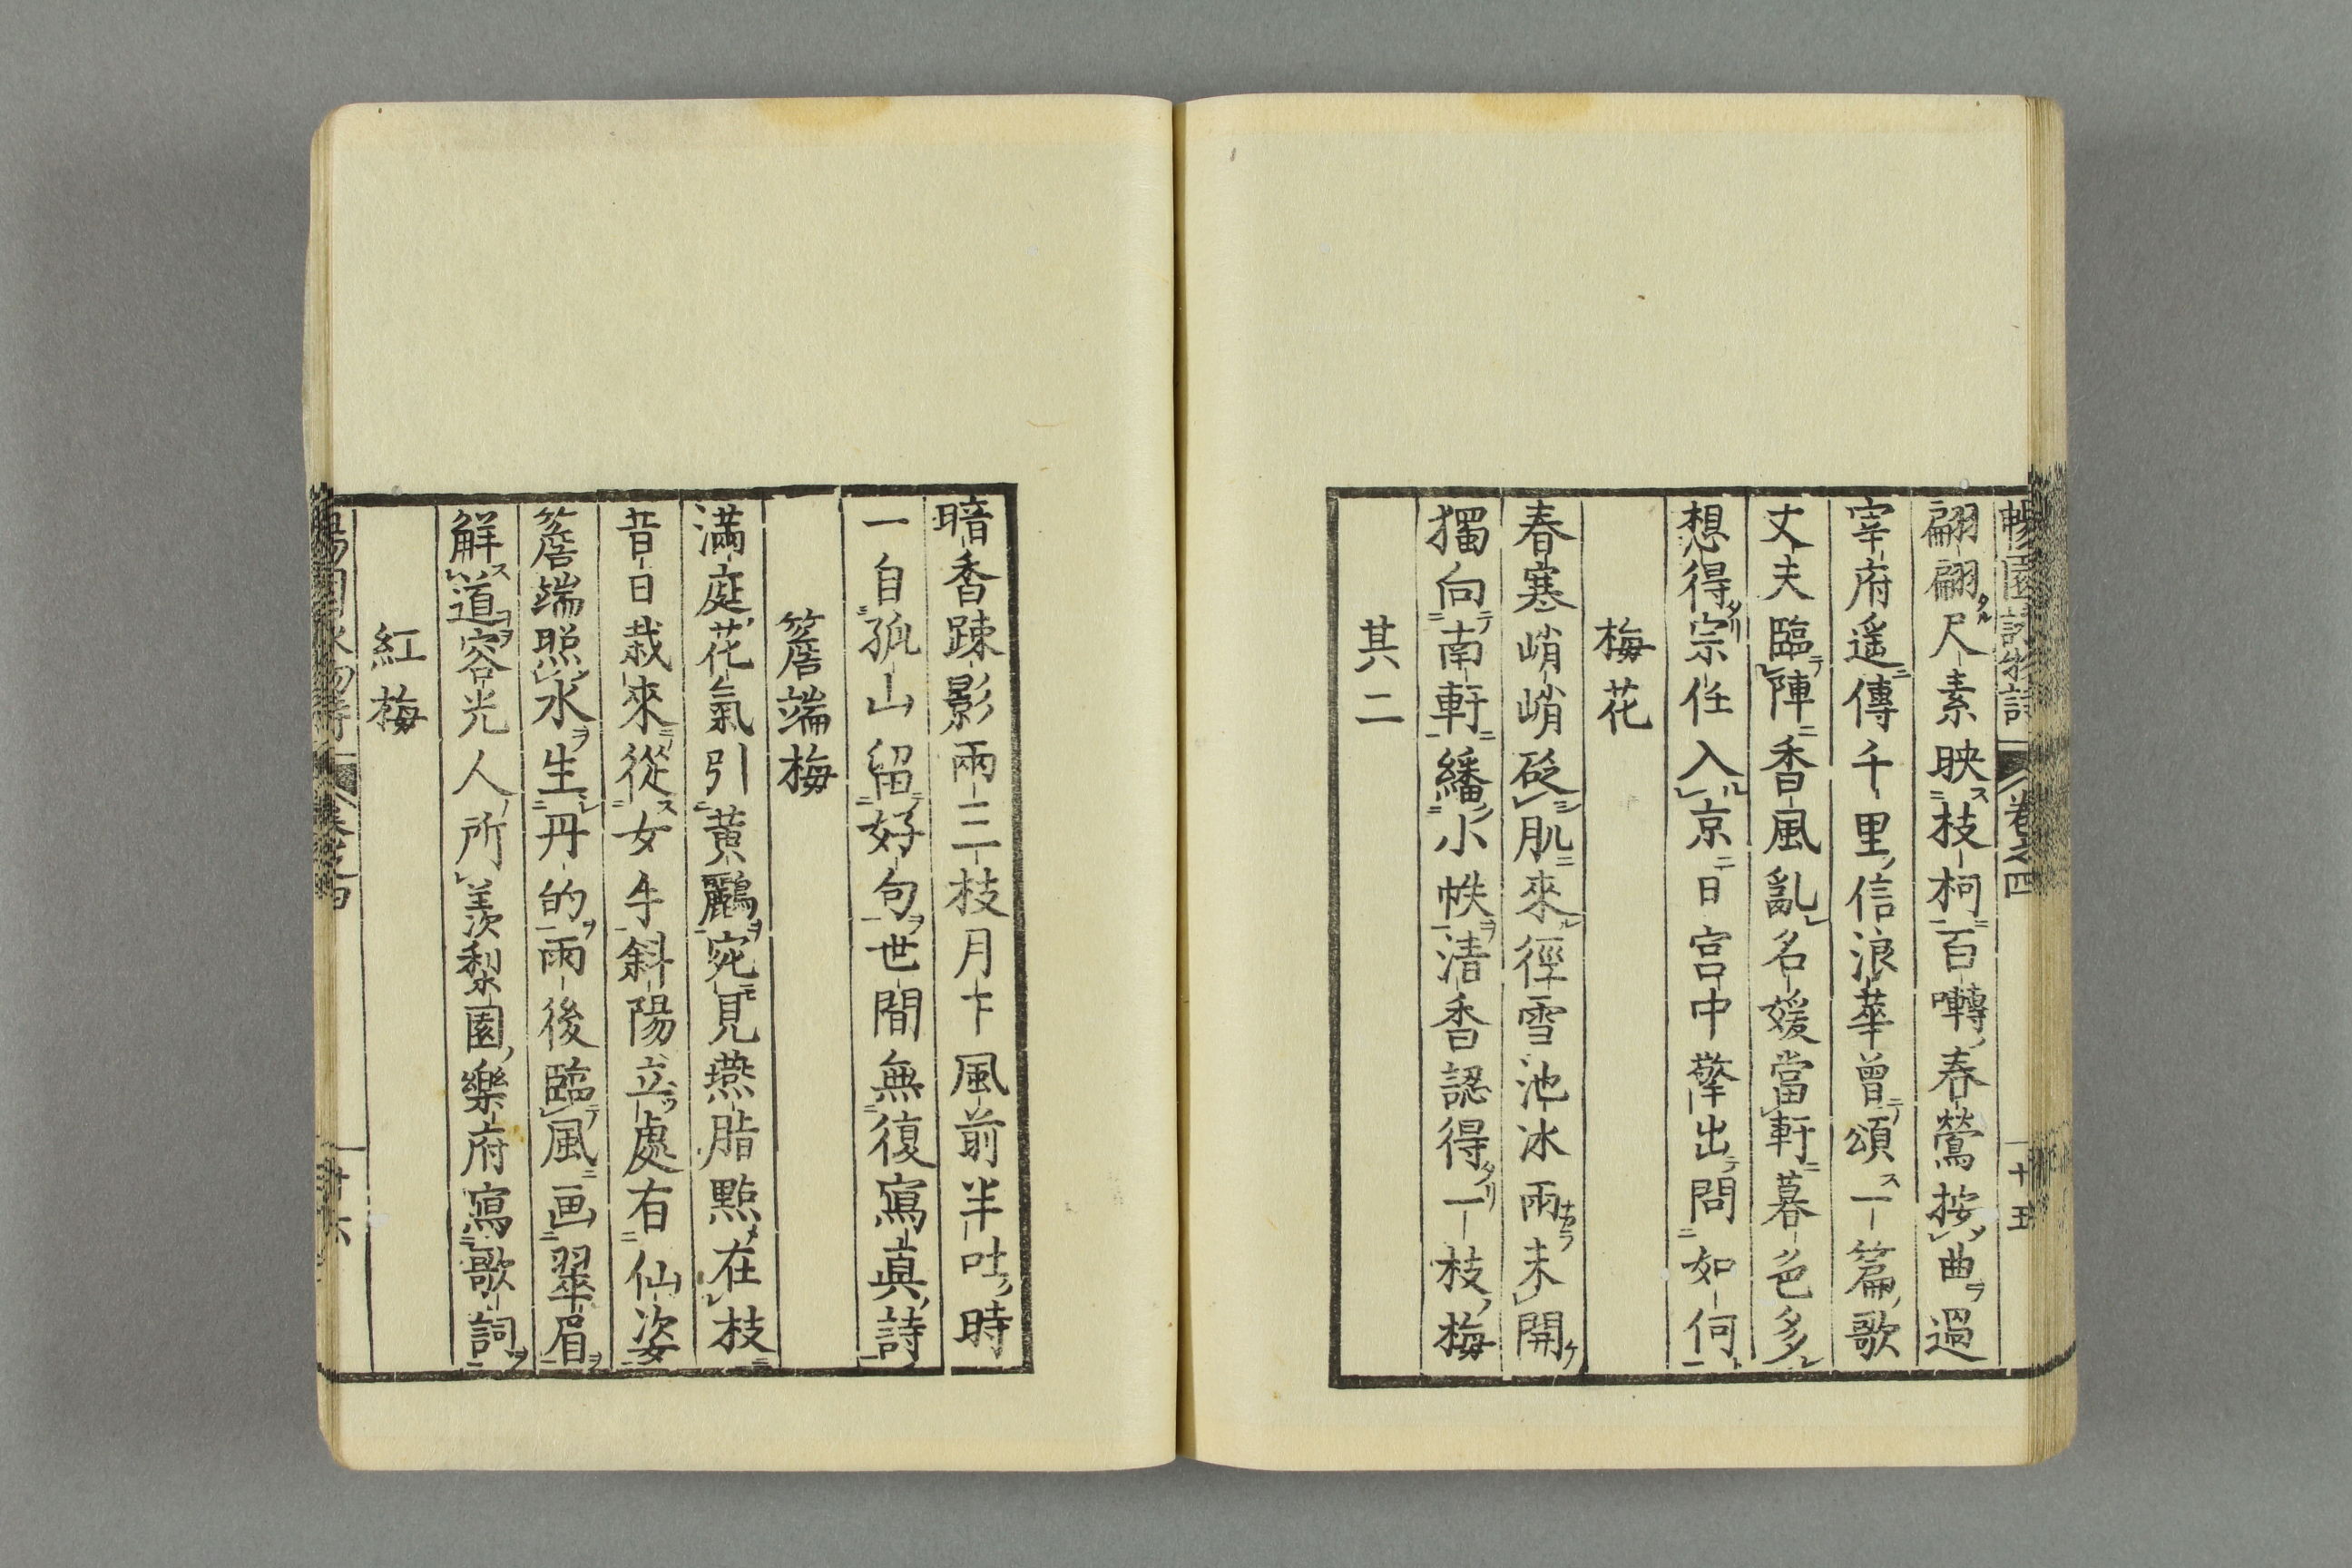 暢園詠物詩 卷之四 十五
翩翩尺素映枝柯百囀春鶯按曲過
宰府遙傳千里信浪華曾頌一篇歌
丈夫臨陣香風亂名媛當軒暮色多
想得宗任入京日宮中擎出問如何
梅花
春寒峭峭砭肌來徑雪池冰兩未開
獨向南軒繙小帙清香認得一枝梅
其二
暗香踈影兩三枝月下風前半吐時
一自孤山留好句世間無復寫真詩
簷端梅
滿庭花氣引黃鸝宛見燕脂點在枝
昔日栽來從女手斜陽立處有仙姿
簷端照水生丹的雨後臨風画翠眉
解道容光人所羨梨園樂府寫歌詞
紅梅